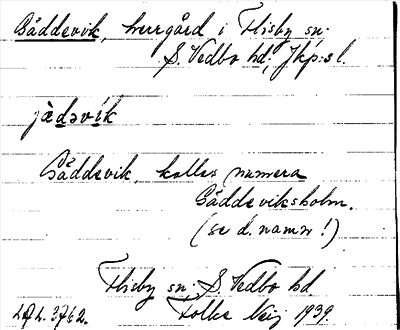 Gäddevik, herrgård i Flisby sn.
S. Vedbo hd; Jkp:s l.
jä̀dəvík
Gäddevik, kallas numera
Gäddeviksholm.
(se d. namn!)
Flisby sn; S. Vedbo hd
ULA. 3762. 1939.